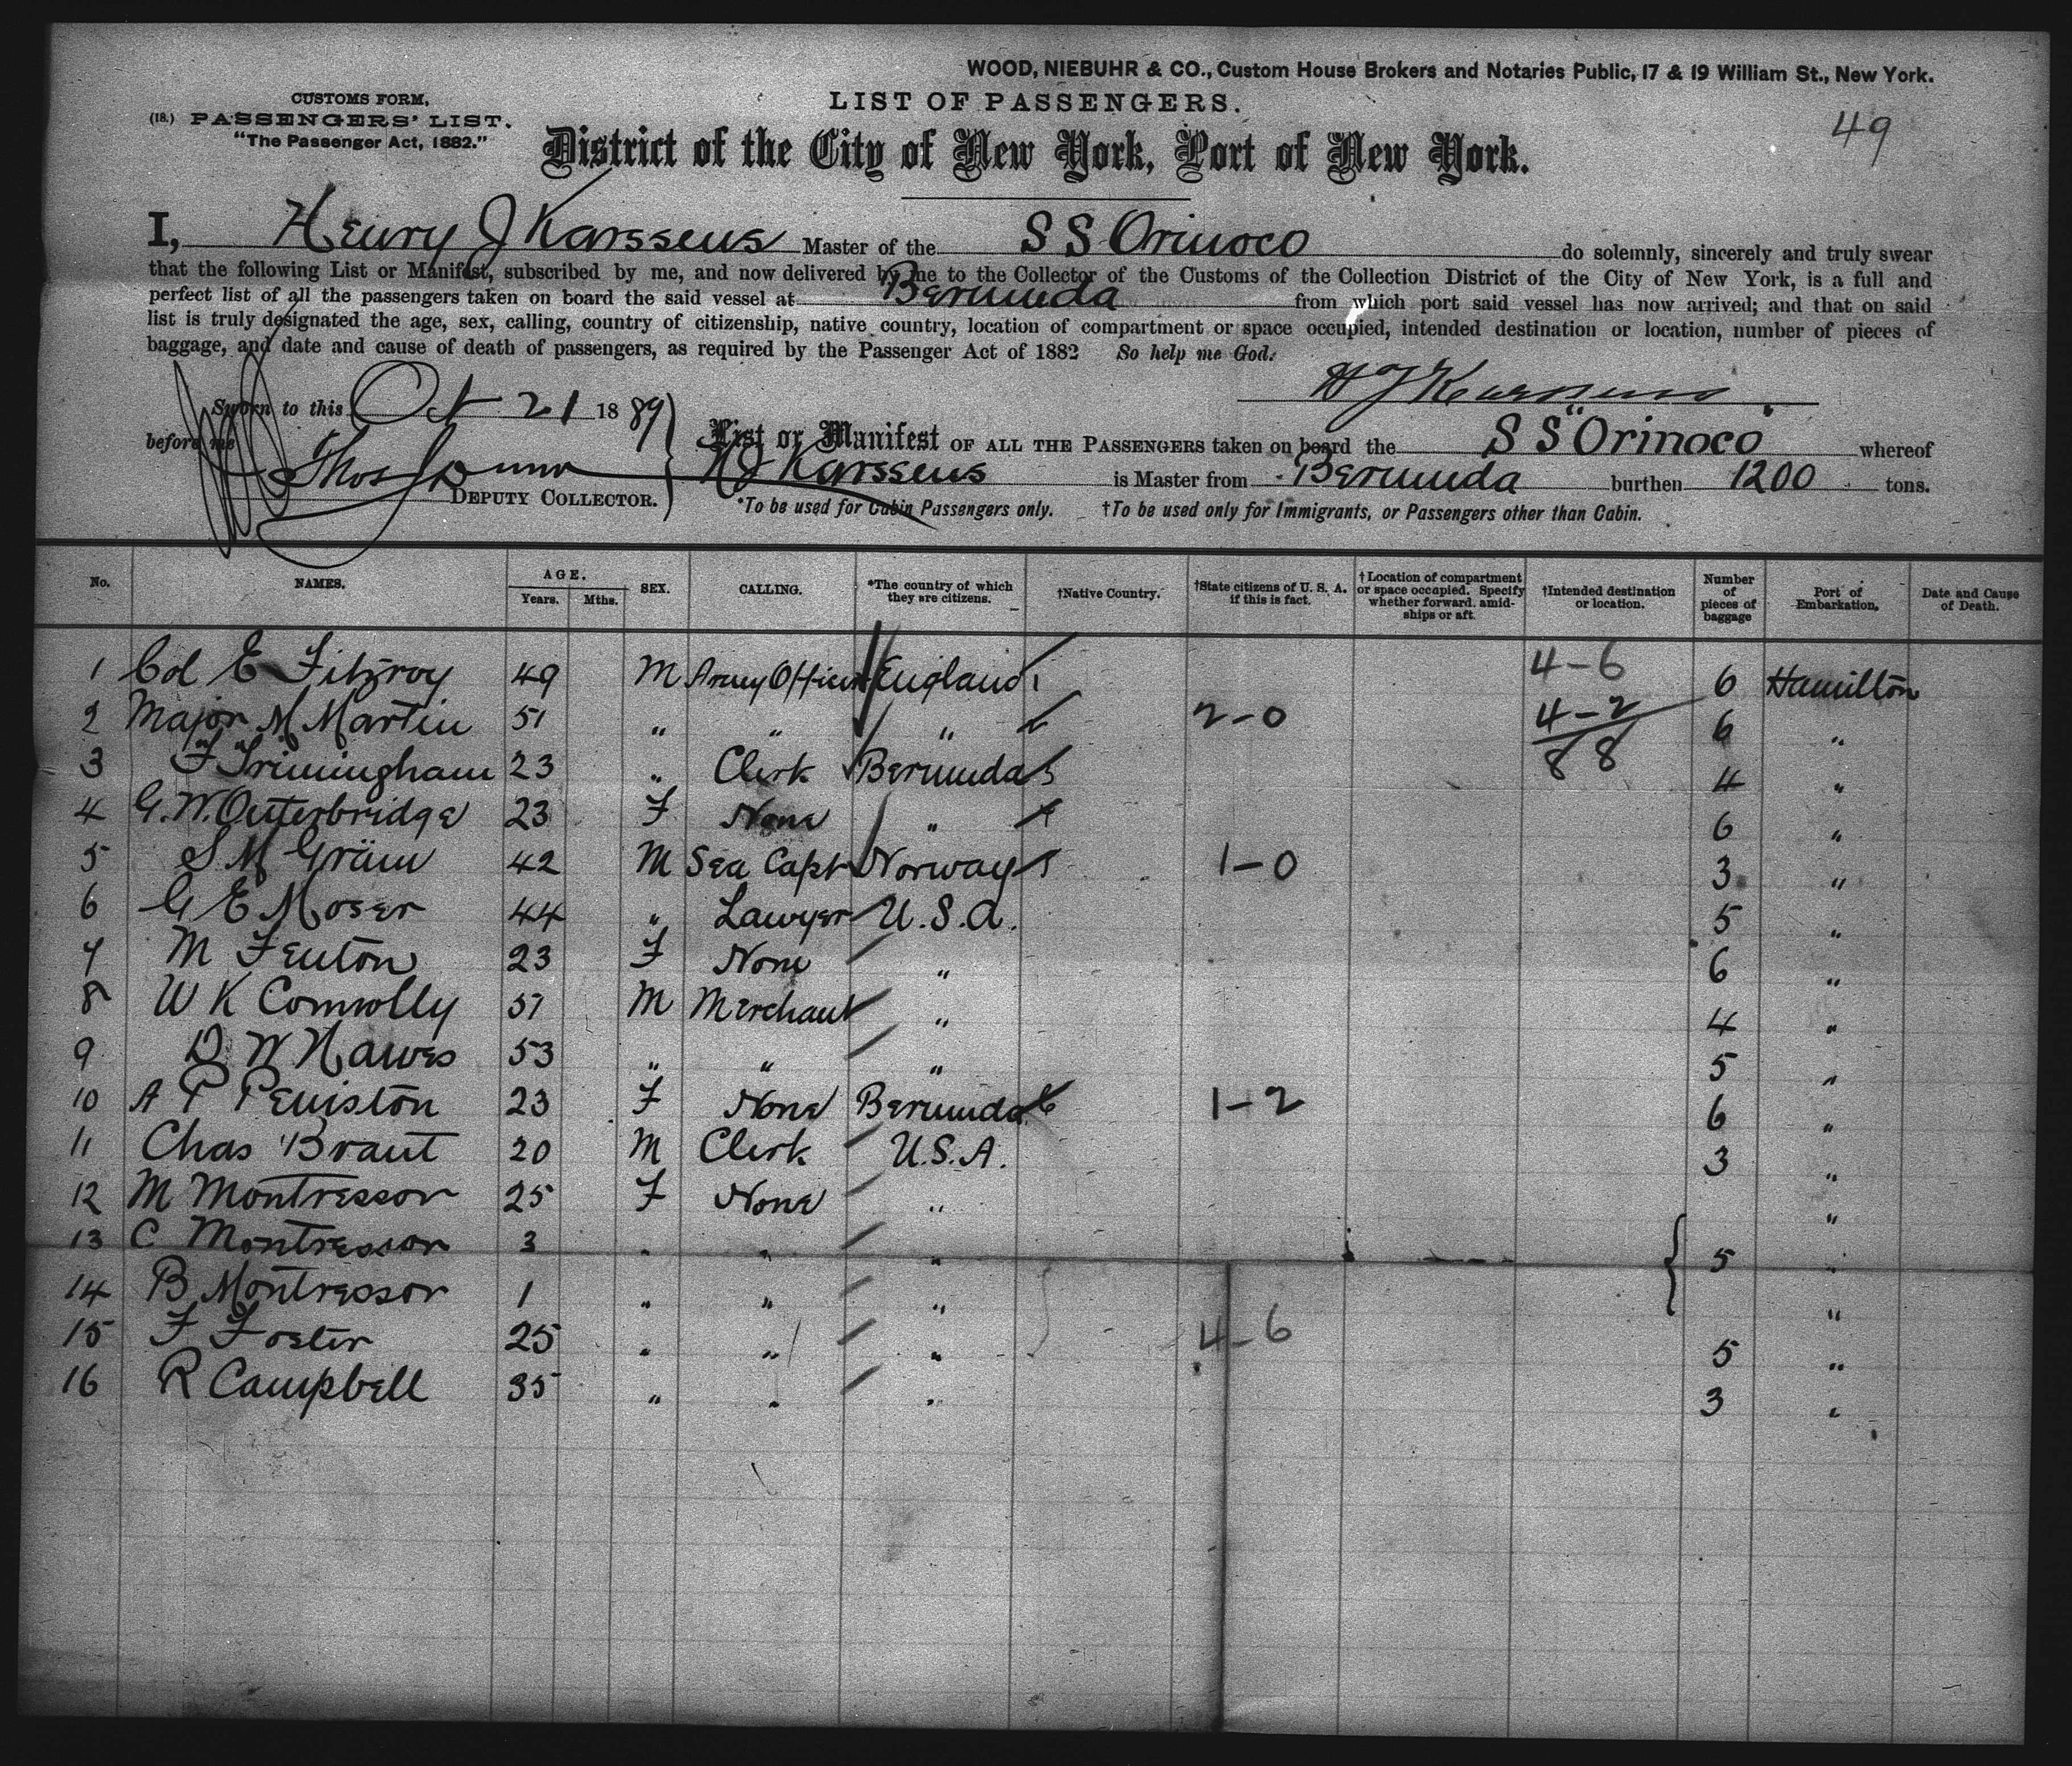 WOOD, NIEBUHR & CO., Custom House Brokers and Notaries Public, 17 & 19 William St., New York.
CUSTOMS FORM,
(18.) PASSENGERS' LIST.
"The Passenger Act, 1882."
LIST OF PASSENGERS.
49
District of the City of New York, Port of New York.
I, Henry J Karssens Master of the S S Orinoco do solemnly, sincerely and truly swear
that the following List or Manifest, subscribed by me, and now delivered by me to the Collector of the Customs of the Collection District of the City of New York, is a full and
perfect list of all the passengers taken on board the said vessel at Bermuda from which port said vessel has now arrived; and that on said
list is truly designated the age, sex, calling, country of citizenship, native country, location of compartment or space occupied, intended destination or location, number of pieces of
baggage, and date and cause of death of passengers, as required by the Passenger Act of 1882 So help me God.
H J Karssens
Sworn to this Oct 21 1889
before me Thos Dunn
DEPUTY COLLECTOR.
List or Manifest OF ALL THE PASSENGERS taken on board the S S "Orinoco" whereof
H J Karssens is Master from Bermuda burthen 1200 tons.
*To be used for Cabin Passengers only. †To be used only for Immigrants, or Passengers other than Cabin.
No. NAMES. AGE. Years. Mths. SEX. CALLING. *The country of which they are citizens. †Native Country. †State citizens of U. S. A. if this is fact. †Location of compartment or space occupied. Specify whether forward, amidships or aft. †Intended destination or location. Number of pieces of baggage Port of Embarkation. Date and Cause of Death.
1 Col E Fitzroy 49 M Army Officer England 4-6 6 Hamilton
2 Major M Martin 51 " " " 2-0 4-2 6 "
3 F Trimingham 23 " Clerk Bermuda 8 8 4 "
4 G. W. Outerbridge 23 F None " 6 "
5 S M Gräm 42 M Sea Capt Norway 1-0 3 "
6 G E Moser 44 " Lawyer U.S.A. 5 "
7 M Fenton 23 F None " 6 "
8 W K Connolly 57 M Merchant " 4 "
9 D W Hawes 53 " " " 5 "
10 A P Peniston 23 F None Bermuda 1-2 6 "
11 Chas Brant 20 M Clerk U.S.A. 3 "
12 M Montressor 25 F None " "
13 C Montressor 3 " " " 5 "
14 B Montressor 1 " " " "
15 F Foster 25 " " " 4-6 5 "
16 R Campbell 35 " " " 3 "